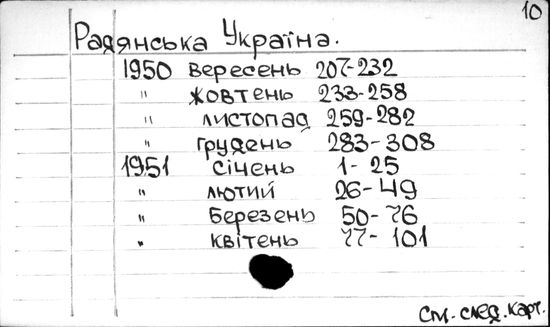 10
Радянська Україна.
1950 вересень 207-232
" жовтень 233-258
" листопад 259-282
" грудень 283-308
1951 січень 1-25
" лютий 26-49
" березень 50-76
" квітень 77-101
См. след. карт.